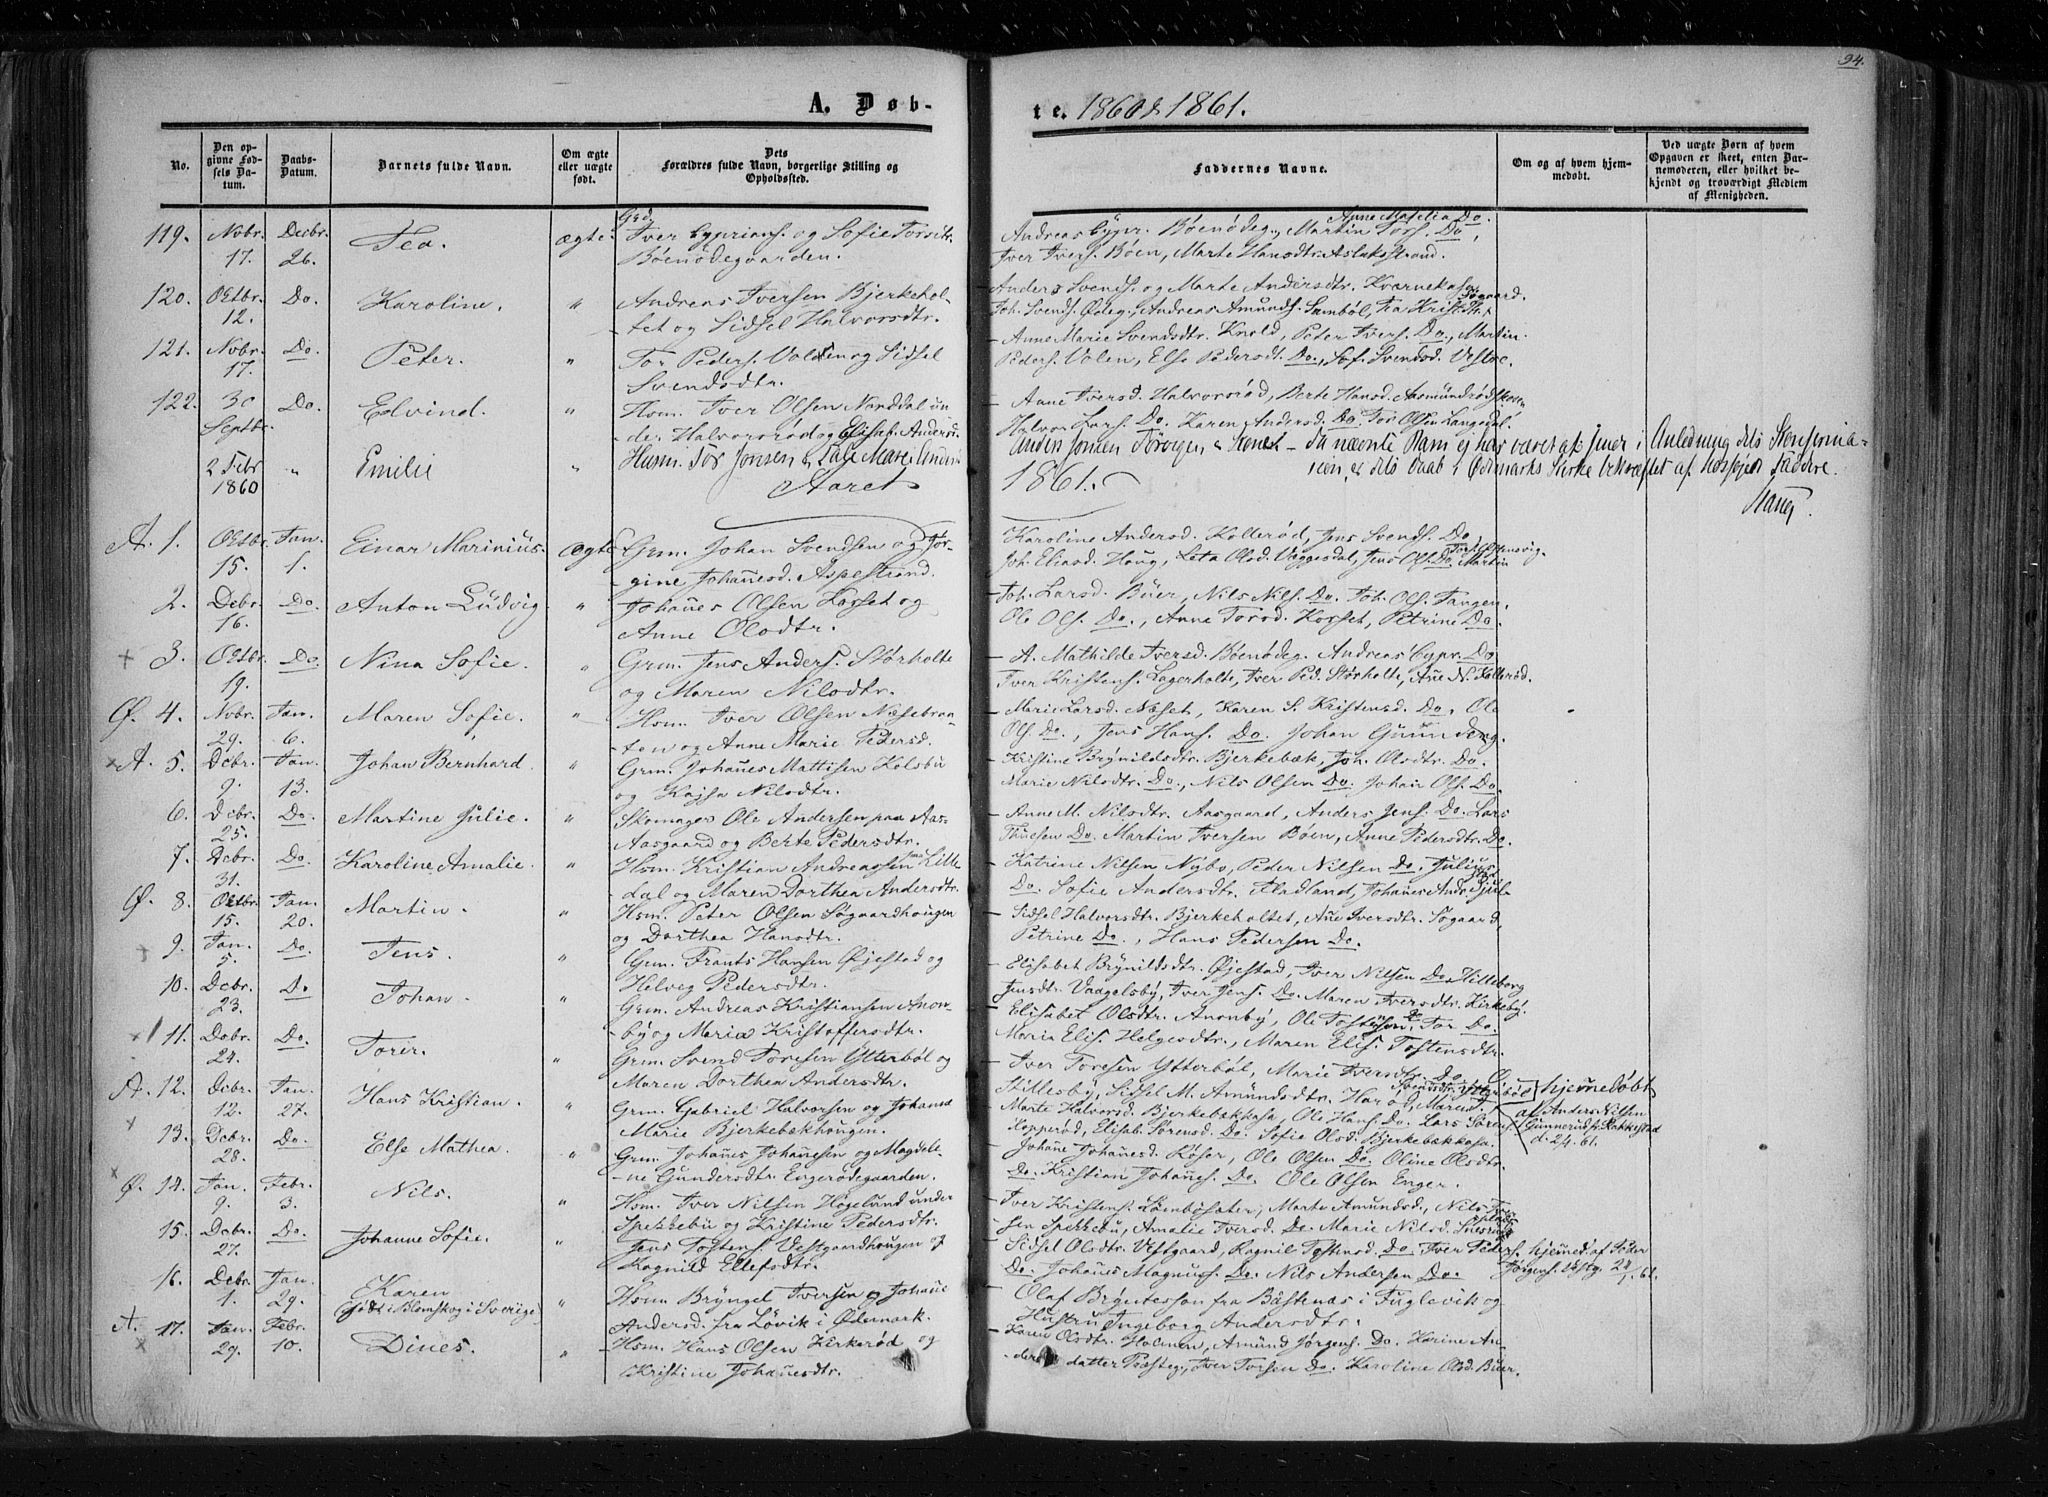 94.
A. Døb-
te. 1860 & 1861.
No.
Den op-
givne Fød-
sels Da-
tum.
Daabs-
Datum.
Barnets fulde Navn.
Om ægte
eller uægte
født.
Dets
Forældres fulde Navn, borgerlige Stilling og
Opholdssted.
Faddernes Navne.
Om og af hvem hjem-
medøbt.
Ved uægte Børn af hvem
Opgaven er skeet, enten Bar-
nemoderen, eller hvilket be-
kjendt og troværdigt Medlem
af Menigheden.
119. Nvbr. 17. Decbr. 26. Tea. ægte
Iver Cyprians. og Sofie Torsdtr.
Bøenødegaarden.
Anne Matelia Do.
Andreas Cypr. Bøenødeg., Martin Tors. Do,
Iver Ivers. Bøen, Marte Hansdtr. Aslakstrand.
120. Octbr. 12. Do. Karoline. "
Andreas Iversen Bjerkehol-
tet og Sidsel Halvorsdtr.
Anders Svends. og Marte Andersdtr. Kværnekasa
Joh. Svends. Ødeg., Andreas Amunds. Sambøl,
121. Nvbr. 17. Do. Peter. "
Tor Peders. Volden og Sidsel
Svendsdtr.
Anne Marie Svendsdtr. Knold, Peter Ivers. Do., Martin
Peders. Volen, Else Pedersdt. Do., Sof. Svendsd. Vestre.
122. 30 Septbr. Do. Edvind. "
Hsm. Iver Olsen Norddal un-
der Halvorsrød og Elisab. Andersd.
Anne Iversd. Halvorsrød, Berte Hansd. Aasmundrød
Halvor Lars. Do. Karen Andersd. Do. Tor Olsen Langedal.
2 Febr 1860 " Emilie "
Husm. Tor Jonsen &
Aaret
1861.
Stang.
A. 1. Octbr. 15. Jan. 1. Einar Marinius. ægte
Grm. Johan Svendsen og Jør-
gine Johañesd. Aspestrand.
Karoline Andersd. Kollerød, Jens Svends. Do,
Joh. Eliasd. Houg, Leta Olsd. Væggesdal, Jens Ols. Do. Martin
2. Debr. 16. Do. Anton Ludvig "
Johañes Olsen Kosset og
Anne Olsdtr.
Joh. Larsd. Buer, Nils Nils. Do. Joh. Ols. Tangen,
Ole Ols. Do., Anne Torsd. Kosset, Petrine Do.
3. Octbr. 19. Do. Nina Sofie. "
Grm. Jens Anders. Størholte
og Maren Nilsdtr.
A. Mathilde Iversd. Bøenødeg. Andreas Cypr. Do
Iver Kristens. Lagerholte, Iver Ped. Størholte, Añe N. Kollerød.
Ø. 4. Nvbr. 29. Jan. 6. Maren Sofie. "
Hsm. Iver Olsen Næsebraa-
ten og Anne Marie Pedersd.
Marie Larsd. Næset, Karen S. Kristensd. Do, Ole
Ols. Do., Jens Hans. Do. Johan Gunndeng.
A. 5. Dcbr. 9. Jan. 13. Johan Bernhard. "
Grm. Johañes Mattisen Kolsbu
og Kajsa Nilsdtr.
Kristine Brynildsdtr. Bjerkebæk, Joh. Olsdtr. Do.
Marie Nilsdtr. Do., Nils Olsen Do. Johan Ols. Do.
6. Dcbr. 25. Do. Martine Julie. "
Skomager Ole Andersen paa Aas-
Aasgaard og Berte Pedersdtr.
Anne M. Nilsdtr. Aasgaard, Anders Jens. Do. Lars
Thuesen Do. Martin Iversen Bøen, Anne Pedersdtr. Do.
7. Dcbr. 31. Do. Karoline Amalie. "
Hsm. Kristian Andreassen paa Lille
dal og Maren Dorthea Andersdtr.
Katrine Nilsen Nybo, Peder Nilsen Do, Julius
Do. Sofie Andersdtr. Fladland, Johañes Ands.
Ø. 8. Octbr. 15. Jan. 20. Martin. "
Hsm. Peter Olsen Søgaardhougen
og Dorthea Hansdtr.
Sidsel Halvorsdtr. Bjerkeholtet, Añe Iversdtr. Søgaard,
Petrine Do., Hans Pedersen Do.
9. Jan. 5. Do. Jens. "
Grm. Frants Hansen Øjestad og
Helvig Pedersdtr.
Elisabet Brynildsdtr. Øjestad, Iver Nilsen Do. Hilleborg
Jensdtr. Vaagelsby, Iver Jens. Do. Maren Iversdtr. Kirkeby.
10. Dcbr. 23. Do Johan. "
Grm. Andreas Kristiansen Anon-
by og Maria Kristoffersdtr.
Elisabet Olsdtr. Anonby, Ole Tostensen, Tor Do.
Maria Elis. Helgesdtr., Maren Elis. Tostensdtr.
11. Dcbr. 24. Do. Torer. "
Grm. Svend Toresen Ytterbøl og
Maren Dorthea Andersdtr.
Iver Toresen Ytterbøl, Marie Iversdtr. Do. Ø.
Stillesby, Sidsel M. Amundsdtr.
A. 12. Dcbr. 12. Jan. 27. Hans Kristian. "
Grm. Gabriel Halvorsen og Johanne
Marie Bjerkebækhougen.
Marte Halvorsd. Bjerkebækkasa, Ole Hans. Do. Lars Sørens.
Kopperød, Elisab. Sørensd. Do. Sofie Olsd. Bjerkebækkasa.
hjemmedøbt
af Anders Nilsen
Gunnerud Rakkestad
d. 24. 61.
13. Dcbr. 28. Do. Else Mathea. "
Grm. Johañes Johañesen og Magdele-
ne Gundersdtr. Engerødegaarden.
Johañe Johañesd. Køser, Ole Olsen Do. Oline Olsdtr.
Do. Kristian Johañes. Do. Ole Olsen Enger.
Ø. 14. Jan. 9. Febr. 3. Nils. "
Hsm. Iver Nilsen Høgelund under
Spekkebu og Kristine Pedersdtr.
Iver Kristens. Lømbøsæter, Marte Amundsd., Nils Iver
sen Spekkebu, Amalie Iversd. Do. Marie Nilsd.
15. Dcbr. 27. Do. Johanne Sofie. "
Jens Tostens. Vestgaardhougen og
Ragnild Ellefsdtr.
Sidsel Olsdtr. Vestgaard, Ragnil Tostensd. Do. Iver Peders.
Do. Johañes Magnuss. Do. Nils Andersen Do.
hjemmed. af Peder
Jørgens. Vestg. 28/1. 61.
16. Dcbr. 1. Jan. 29. Karen
(født i Blomskog i Sverige) "
Hsm Bryngel Iversen og Johañe
Andersd. fra Løvik i Ødemark.
Olaf Bryntesson fra Bastenæs i Fuglevik og
Hustru Ingeborg Andersdtr.
A. 17. Jan. 29. Febr. 10. Dines. "
Hsm. Hans Olsen Kirkerød og
Kristine Johañesdtr.
Karen Olsdtr. Holmen, Amund Jørgens. Do. Karine An-
ders datter Præsteg., Iver Torsen Do. Karoline Olsd. Buer.